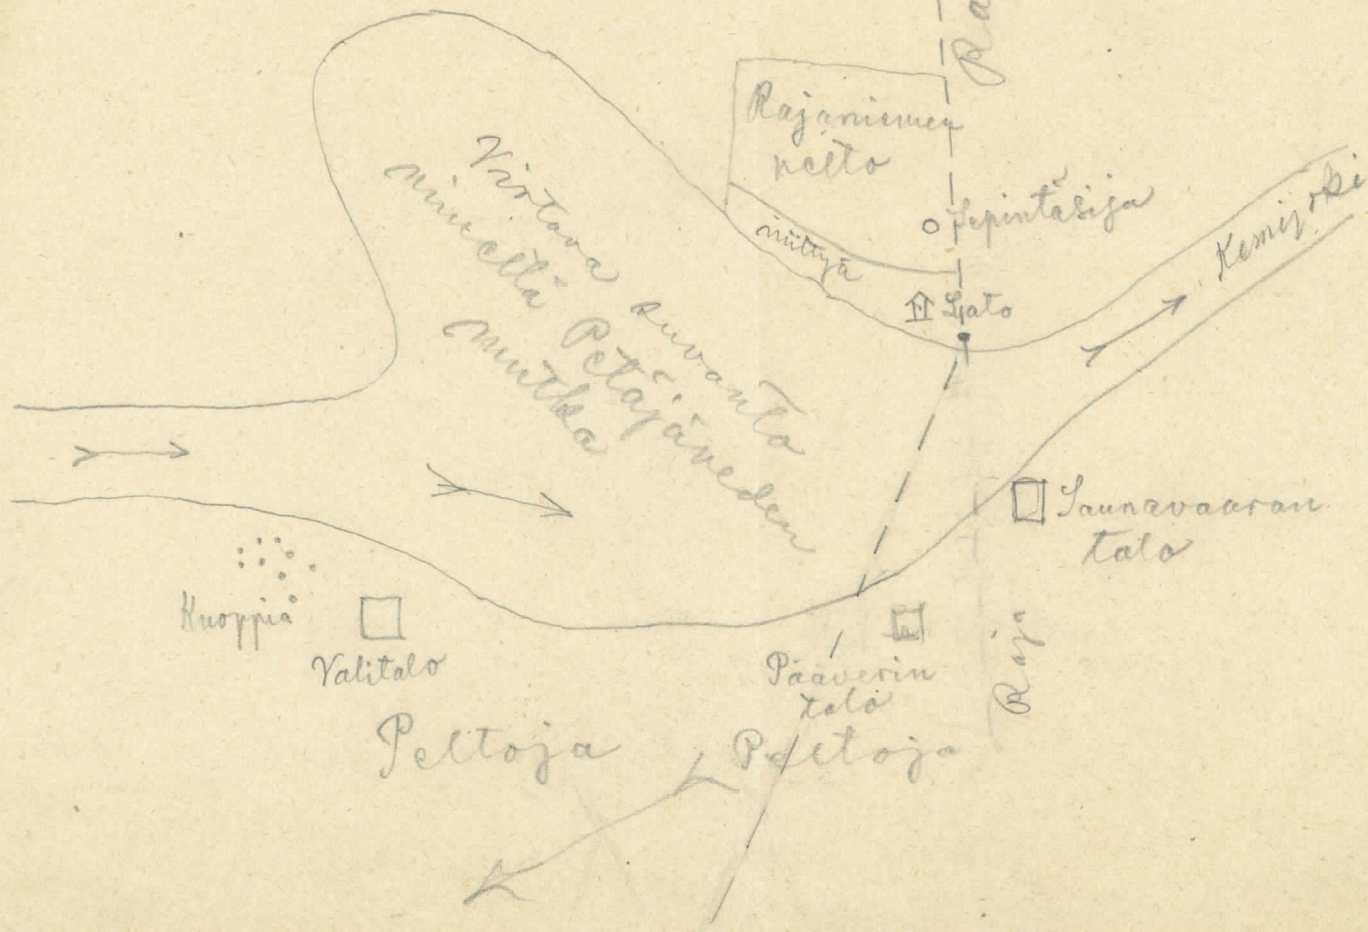 Ra
Rajaniemen
pelto
Sepintäsija
niittyä
Lato
Kemijoki
Virtava suvanto
nimeltä Petäjäveden
mutka
Saunavaaran
talo
Kuoppia
Valitalo
Pääverin
talo
Raja
Peltoja
Peltoja